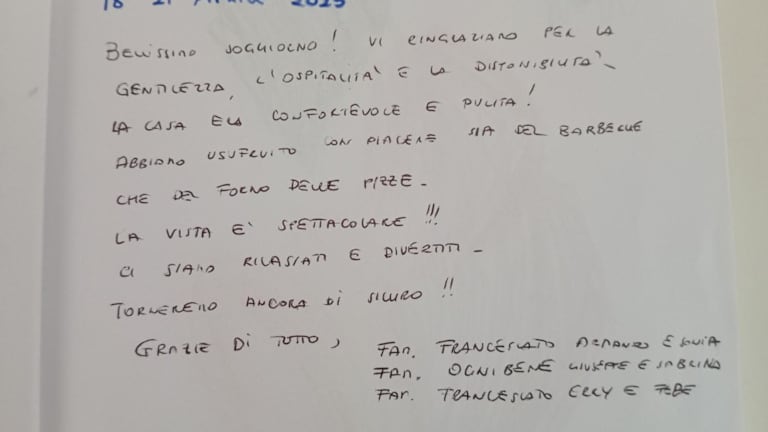 18 21 2025
BELLISSIMO SOGGIORNO! VI RINGRAZIAMO PER LA
GENTILEZZA, L'OSPITALITA' E LA DISPONIBILITA'-
LA CASA ERA CONFORTEVOLE E PULITA!
ABBIAMO USUFRUITO CON PIACERE SIA DEL BARBECUE
CHE DEL FORNO DELLE PIZZE-
LA VISTA E' SPETTACOLARE!!!
CI SIAMO RILASSATI E DIVERTITI-
TORNEREMO ANCORA DI SICURO!!
GRAZIE DI TUTTO,
FAM. FRANCESCATO E
FAM. OGNIBENE GIUSEPPE E SABRINA
FAM. FRANCESCATO E